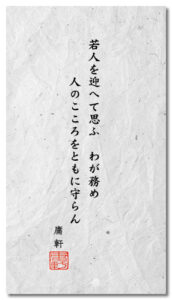 若人を迎へて思ふ　わが務め
人のこころをともに守らん
庸軒